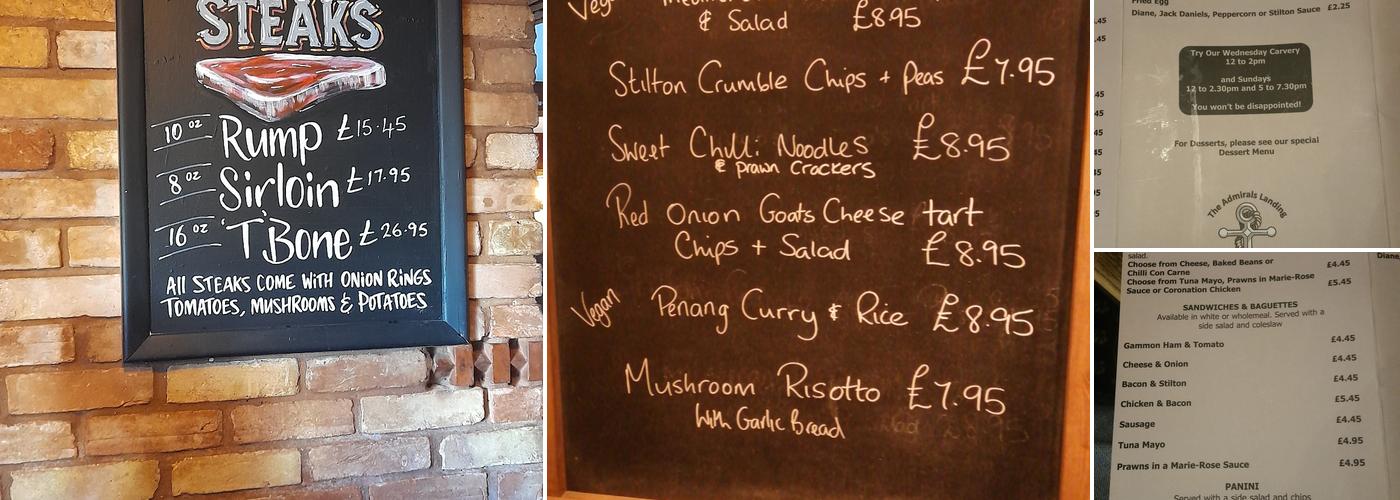 STEAKS
10 oz Rump £15.45
8 oz Sirloin £17.95
16 oz 'T'Bone £26.95
All STEAKS COME WITH ONION RINGS
TOMATOES, MUSHROOMS & POTATOES
& Salad £8.95
Stilton Crumble Chips + Peas £7.95
Sweet Chilli Noodles £8.95
& prawn crackers
Red Onion Goats Cheese tart
Chips + Salad £8.95
Vegan Penang Curry & Rice £8.95
Mushroom Risotto £7.95
With Garlic Bread
Fried Egg
Diane, Jack Daniels, Peppercorn or Stilton Sauce £2.25
Try Our Wednesday Carvery
12 to 2pm
and Sundays
12 to 2.30pm and 5 to 7.30pm
You won't be disappointed!
For Desserts, please see our special
Dessert Menu
The Admirals Landing
salad.
Choose from Cheese, Baked Beans or £4.45
Chilli Con Carne
Choose from Tuna Mayo, Prawns in Marie-Rose £5.45
Sauce or Coronation Chicken
SANDWICHES & BAGUETTES
Available in white or wholemeal. Served with a
side salad and coleslaw
Gammon Ham & Tomato £4.45
Cheese & Onion £4.45
Bacon & Stilton £4.45
Chicken & Bacon £5.45
Sausage £4.45
Tuna Mayo £4.95
Prawns in a Marie-Rose Sauce £4.95
PANINI
Served with a side salad and chips